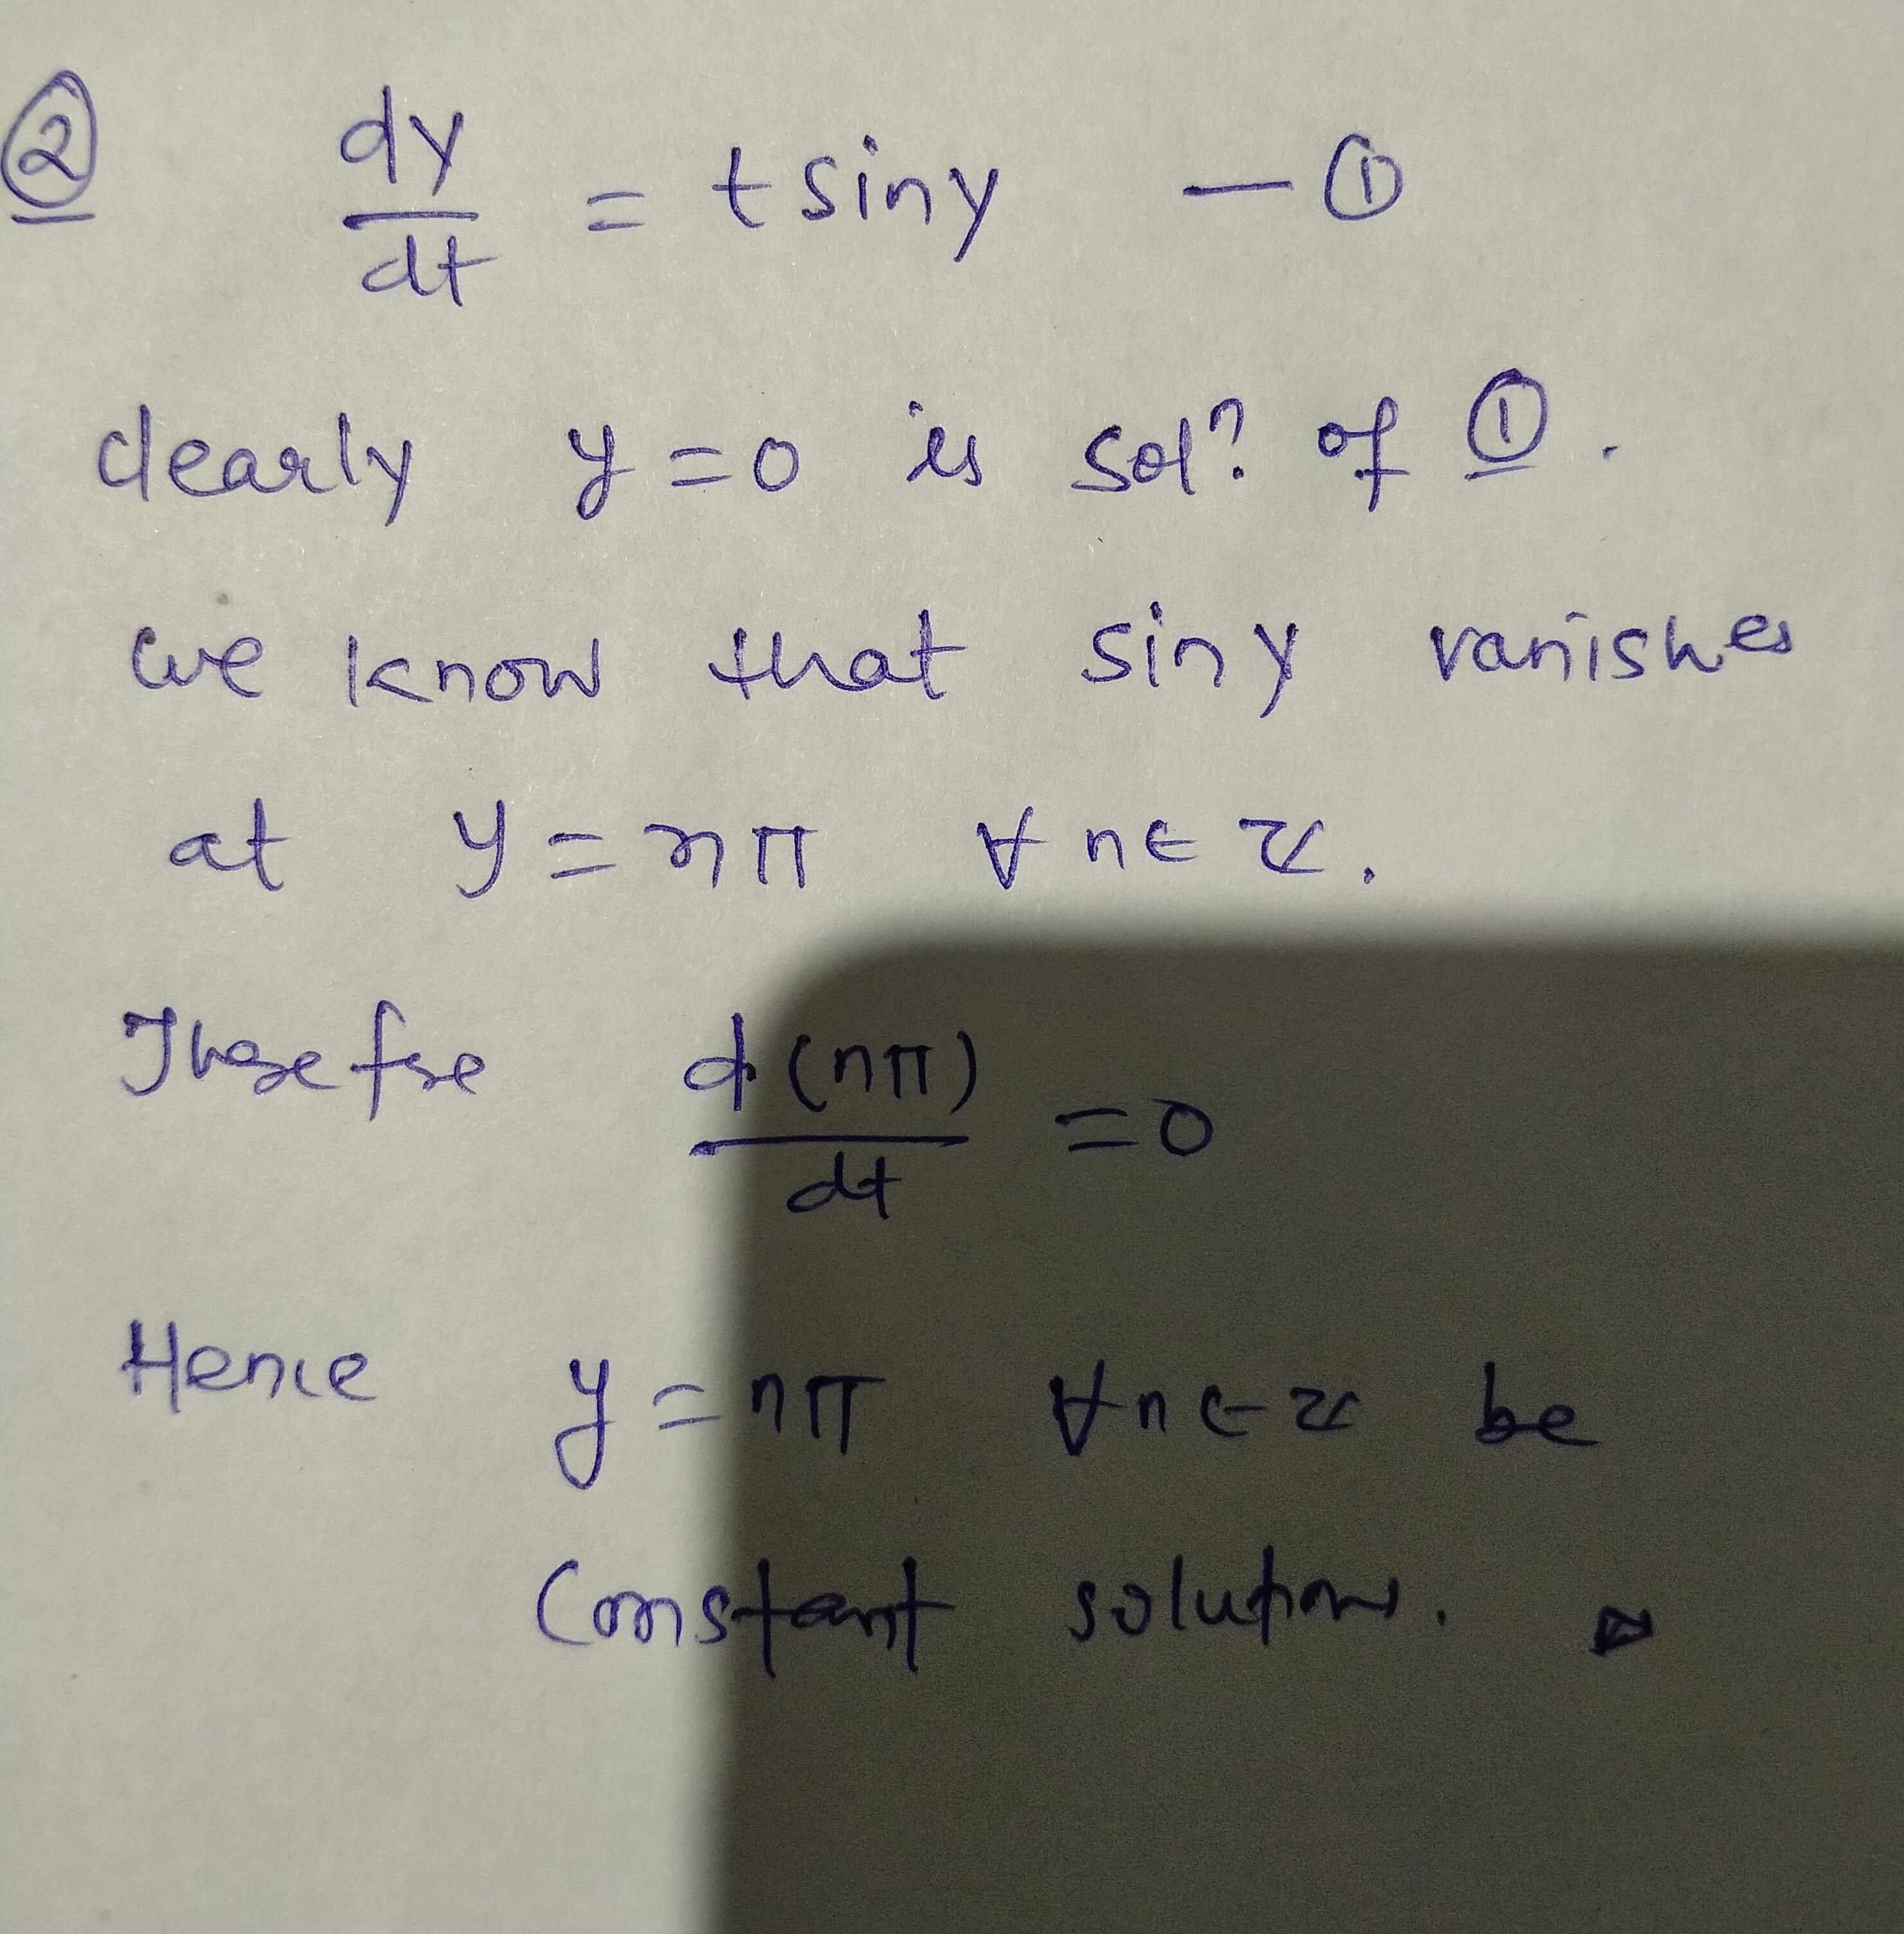 ② dy/dt = t siny — ①
clearly y = 0 is sol? of ①.
we know that siny vanishes
at y = nπ ∀ n ∈ ℤ.
Therefore d(nπ)/dt = 0
Hence y = nπ ∀ n ∈ ℤ be
Constant solutions.